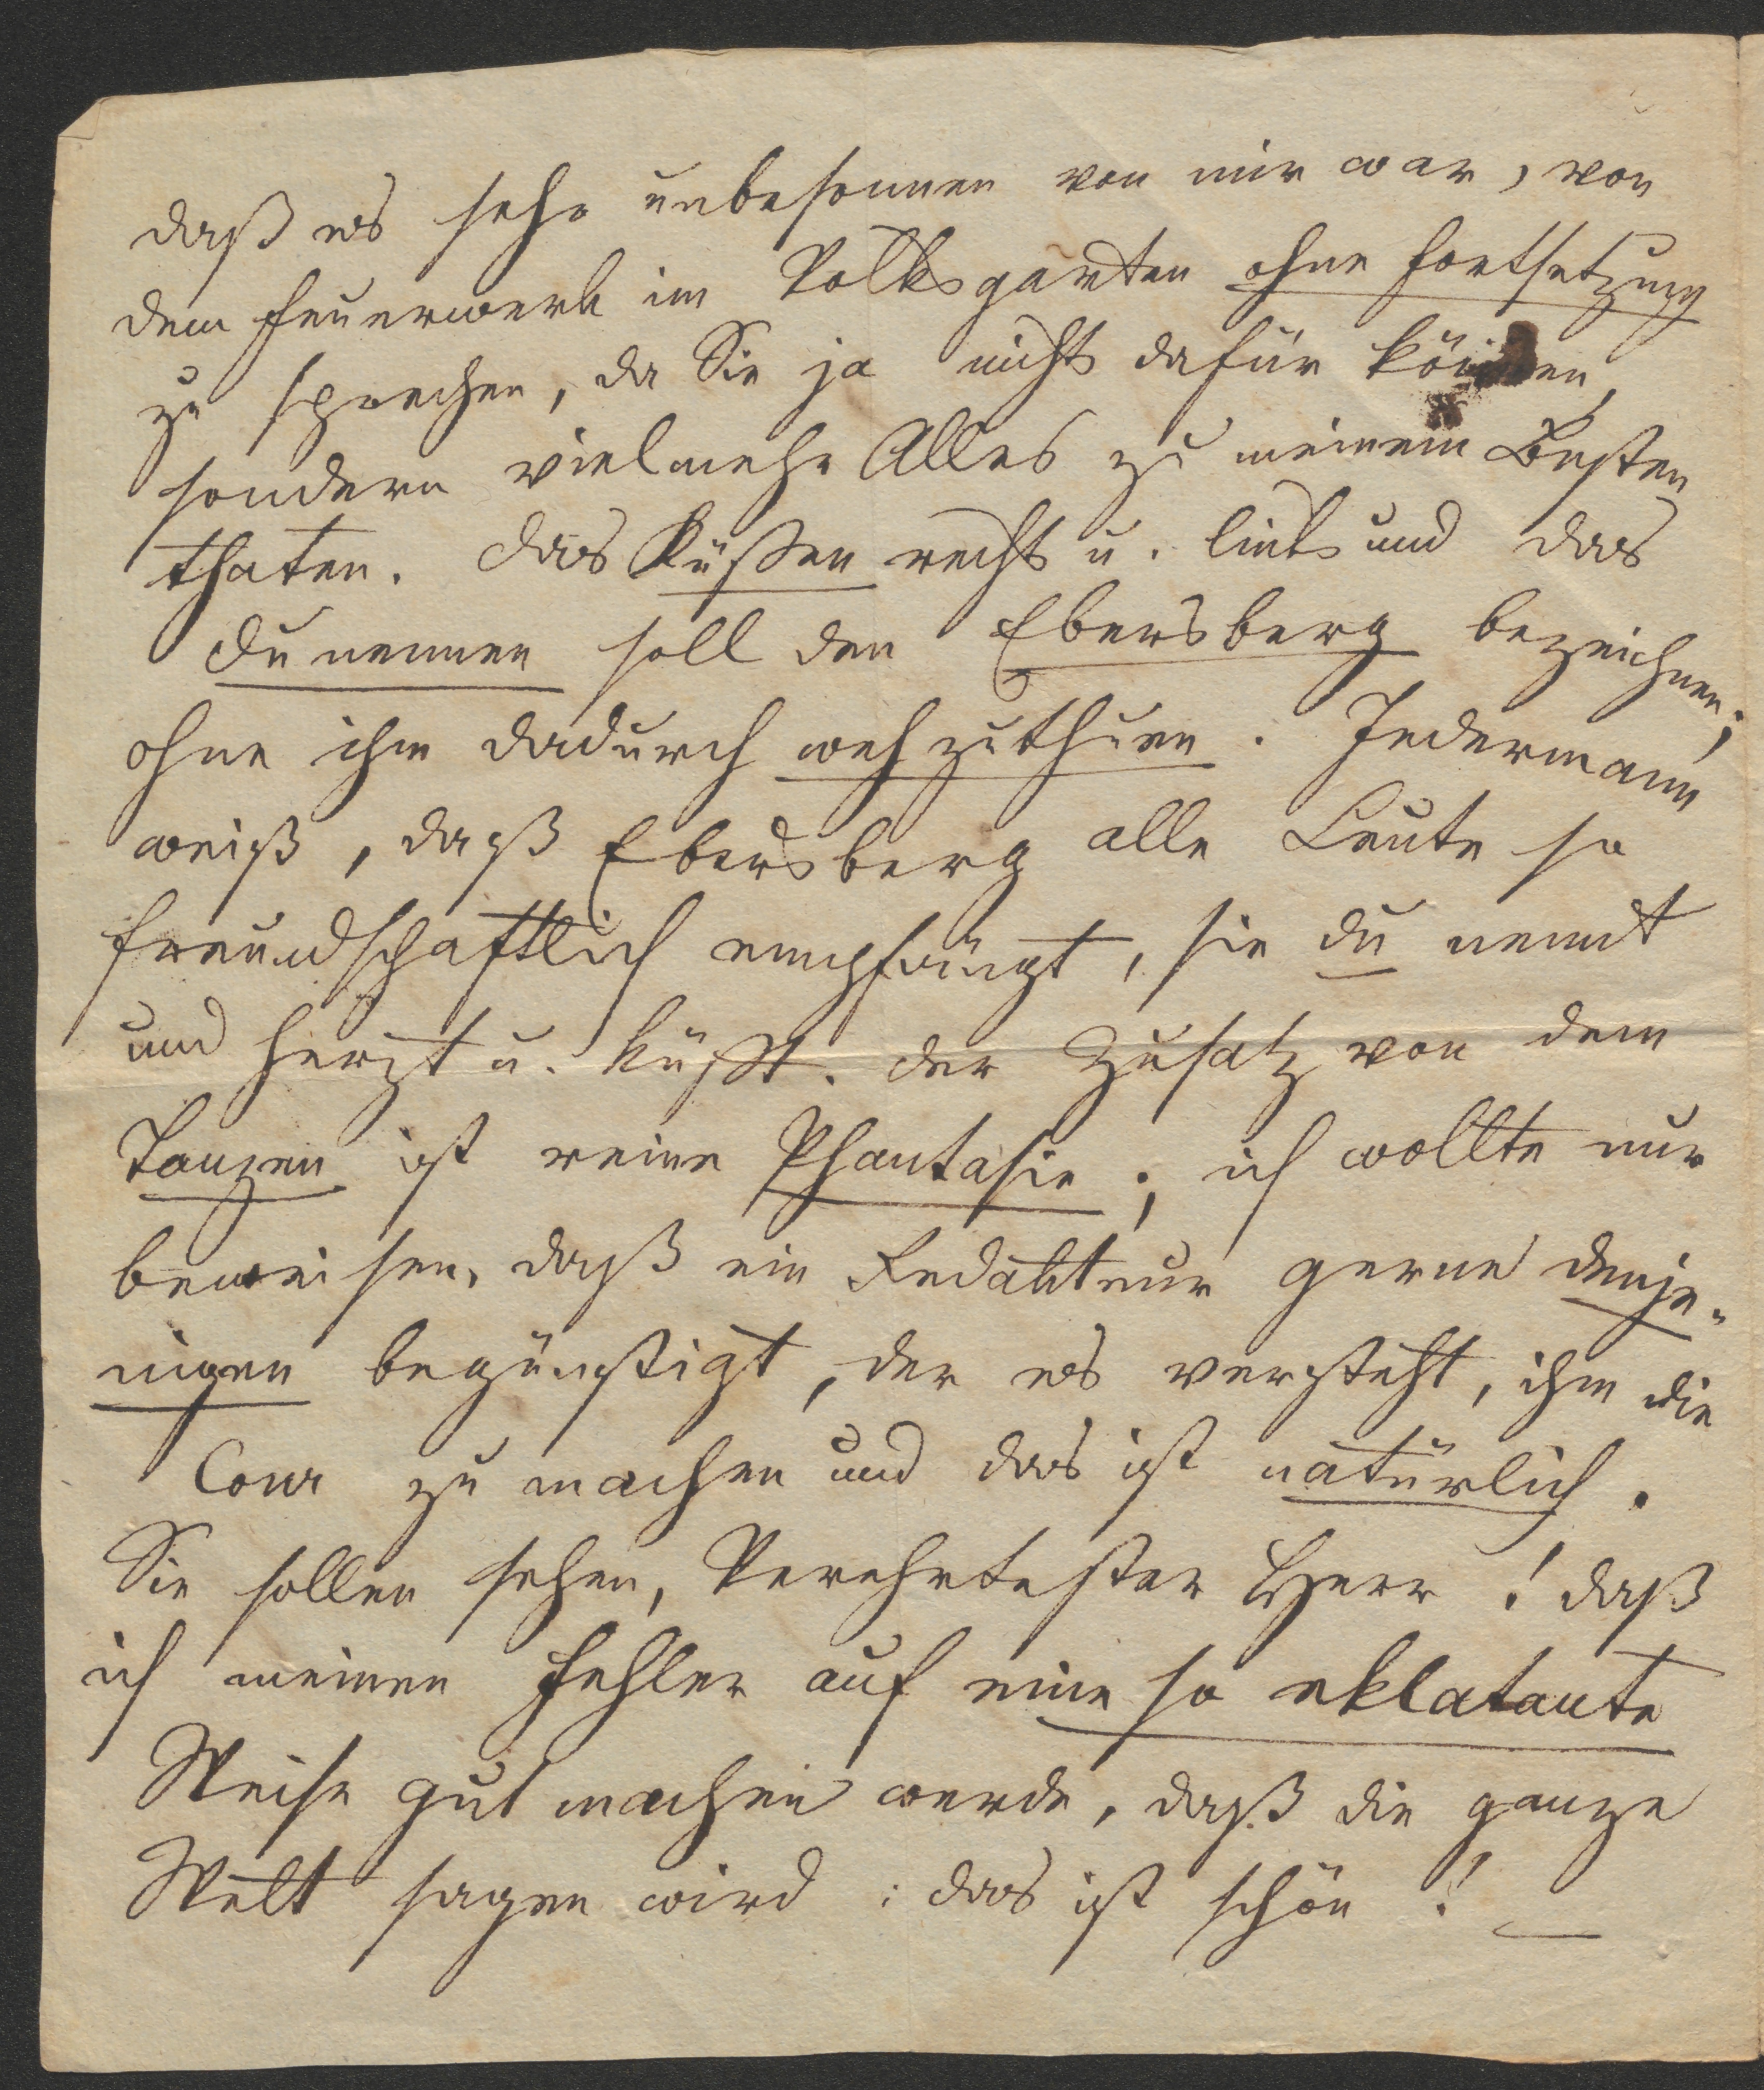 daß es sehr unbesonnen von mir war, von
dem Feuerwerk im Volksgarten ohne Fortsetzung
zu sprechen, da Sie ja nichts dafür können,
sondern vielmehr Alles zu meinem Besten
thaten. Das Küßen rechts u. links und das
Du nennen soll den Ebersberg bezeichnen;
ohne ihm dadurch weh zu thuen. Jedermann
weiß, daß Ebersberg alle Leute so
freundschaftlich empfängt, sie du nennt
und herzt u. küßt. Der Zusatz von dem
Tanzen ist reine Phantasie; ich wollte nur
beweisen, daß ein Redakteur gerne denje-
nigen begünstigt, der es versteht, ihm die
Cour zu machen und das ist natürlich.
Sie sollen sehen, Verehrtester Herr! daß
ich meinen Fehler auf eine so eklatante
Weise gut machen werde, daß die ganze
Welt sagen wird: das ist schön! —